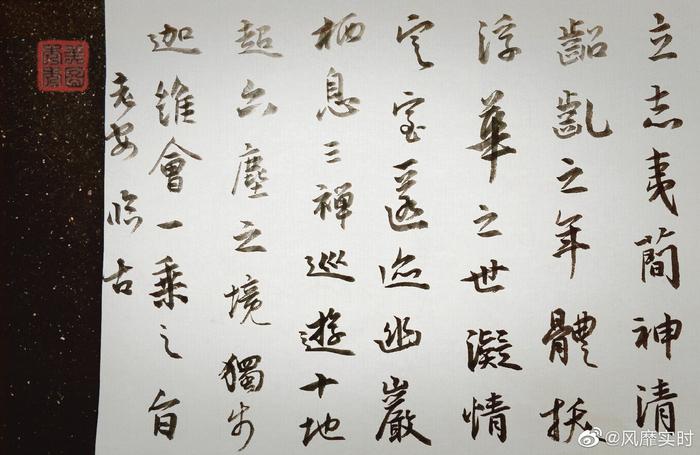 立志夷簡神清
齠齔之年體拔
浮華之世凝情
定室匿迹幽巖
栖息三禪巡遊十地
超六塵之境獨步
迦維會一乘之旨
老安臨古
@风靡实时